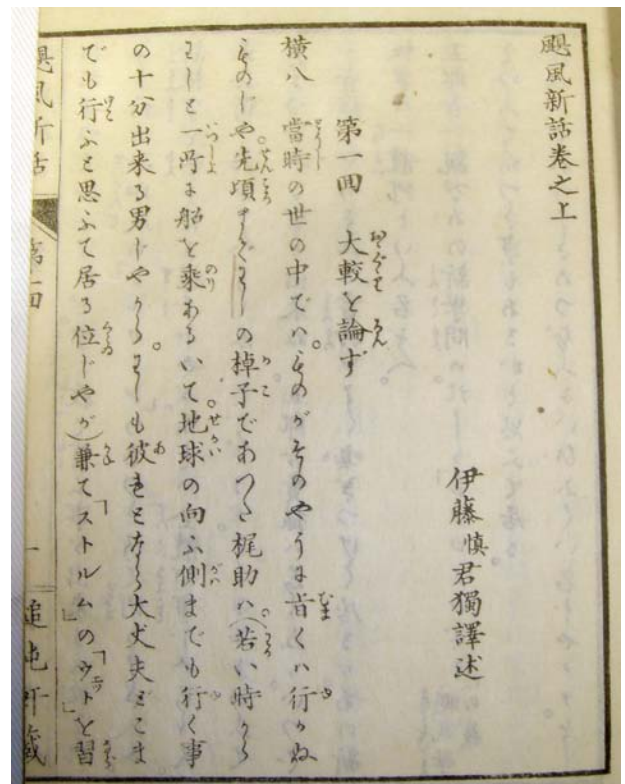 颶風新話巻之上
伊藤慎君獨譯述
第一回 大較を論ず
横八 當時の世の中でハ。ものがそのやうに旨くハ行かぬ
ものじや先頃までわしの梼子であつた梶助ハ(若い時から
わしと一所に船を乗あるいて。地球の向ふ側までも行く事
の十分出来る男じやから。わしも彼をとなら大丈夫どこま
でも行ふと思ふて居る位じやが)兼て「ストルム」の「ウヱット」を習
颶風新話
第一回
一